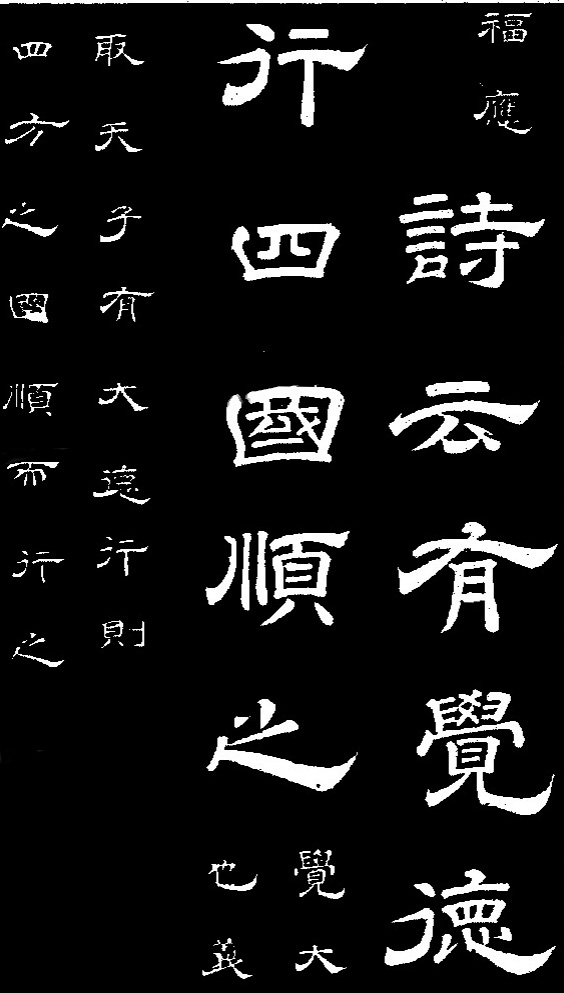 福應
詩云有覺德
行四國順之
覺大
也義
取天子有大德行則
四方之國順而行之